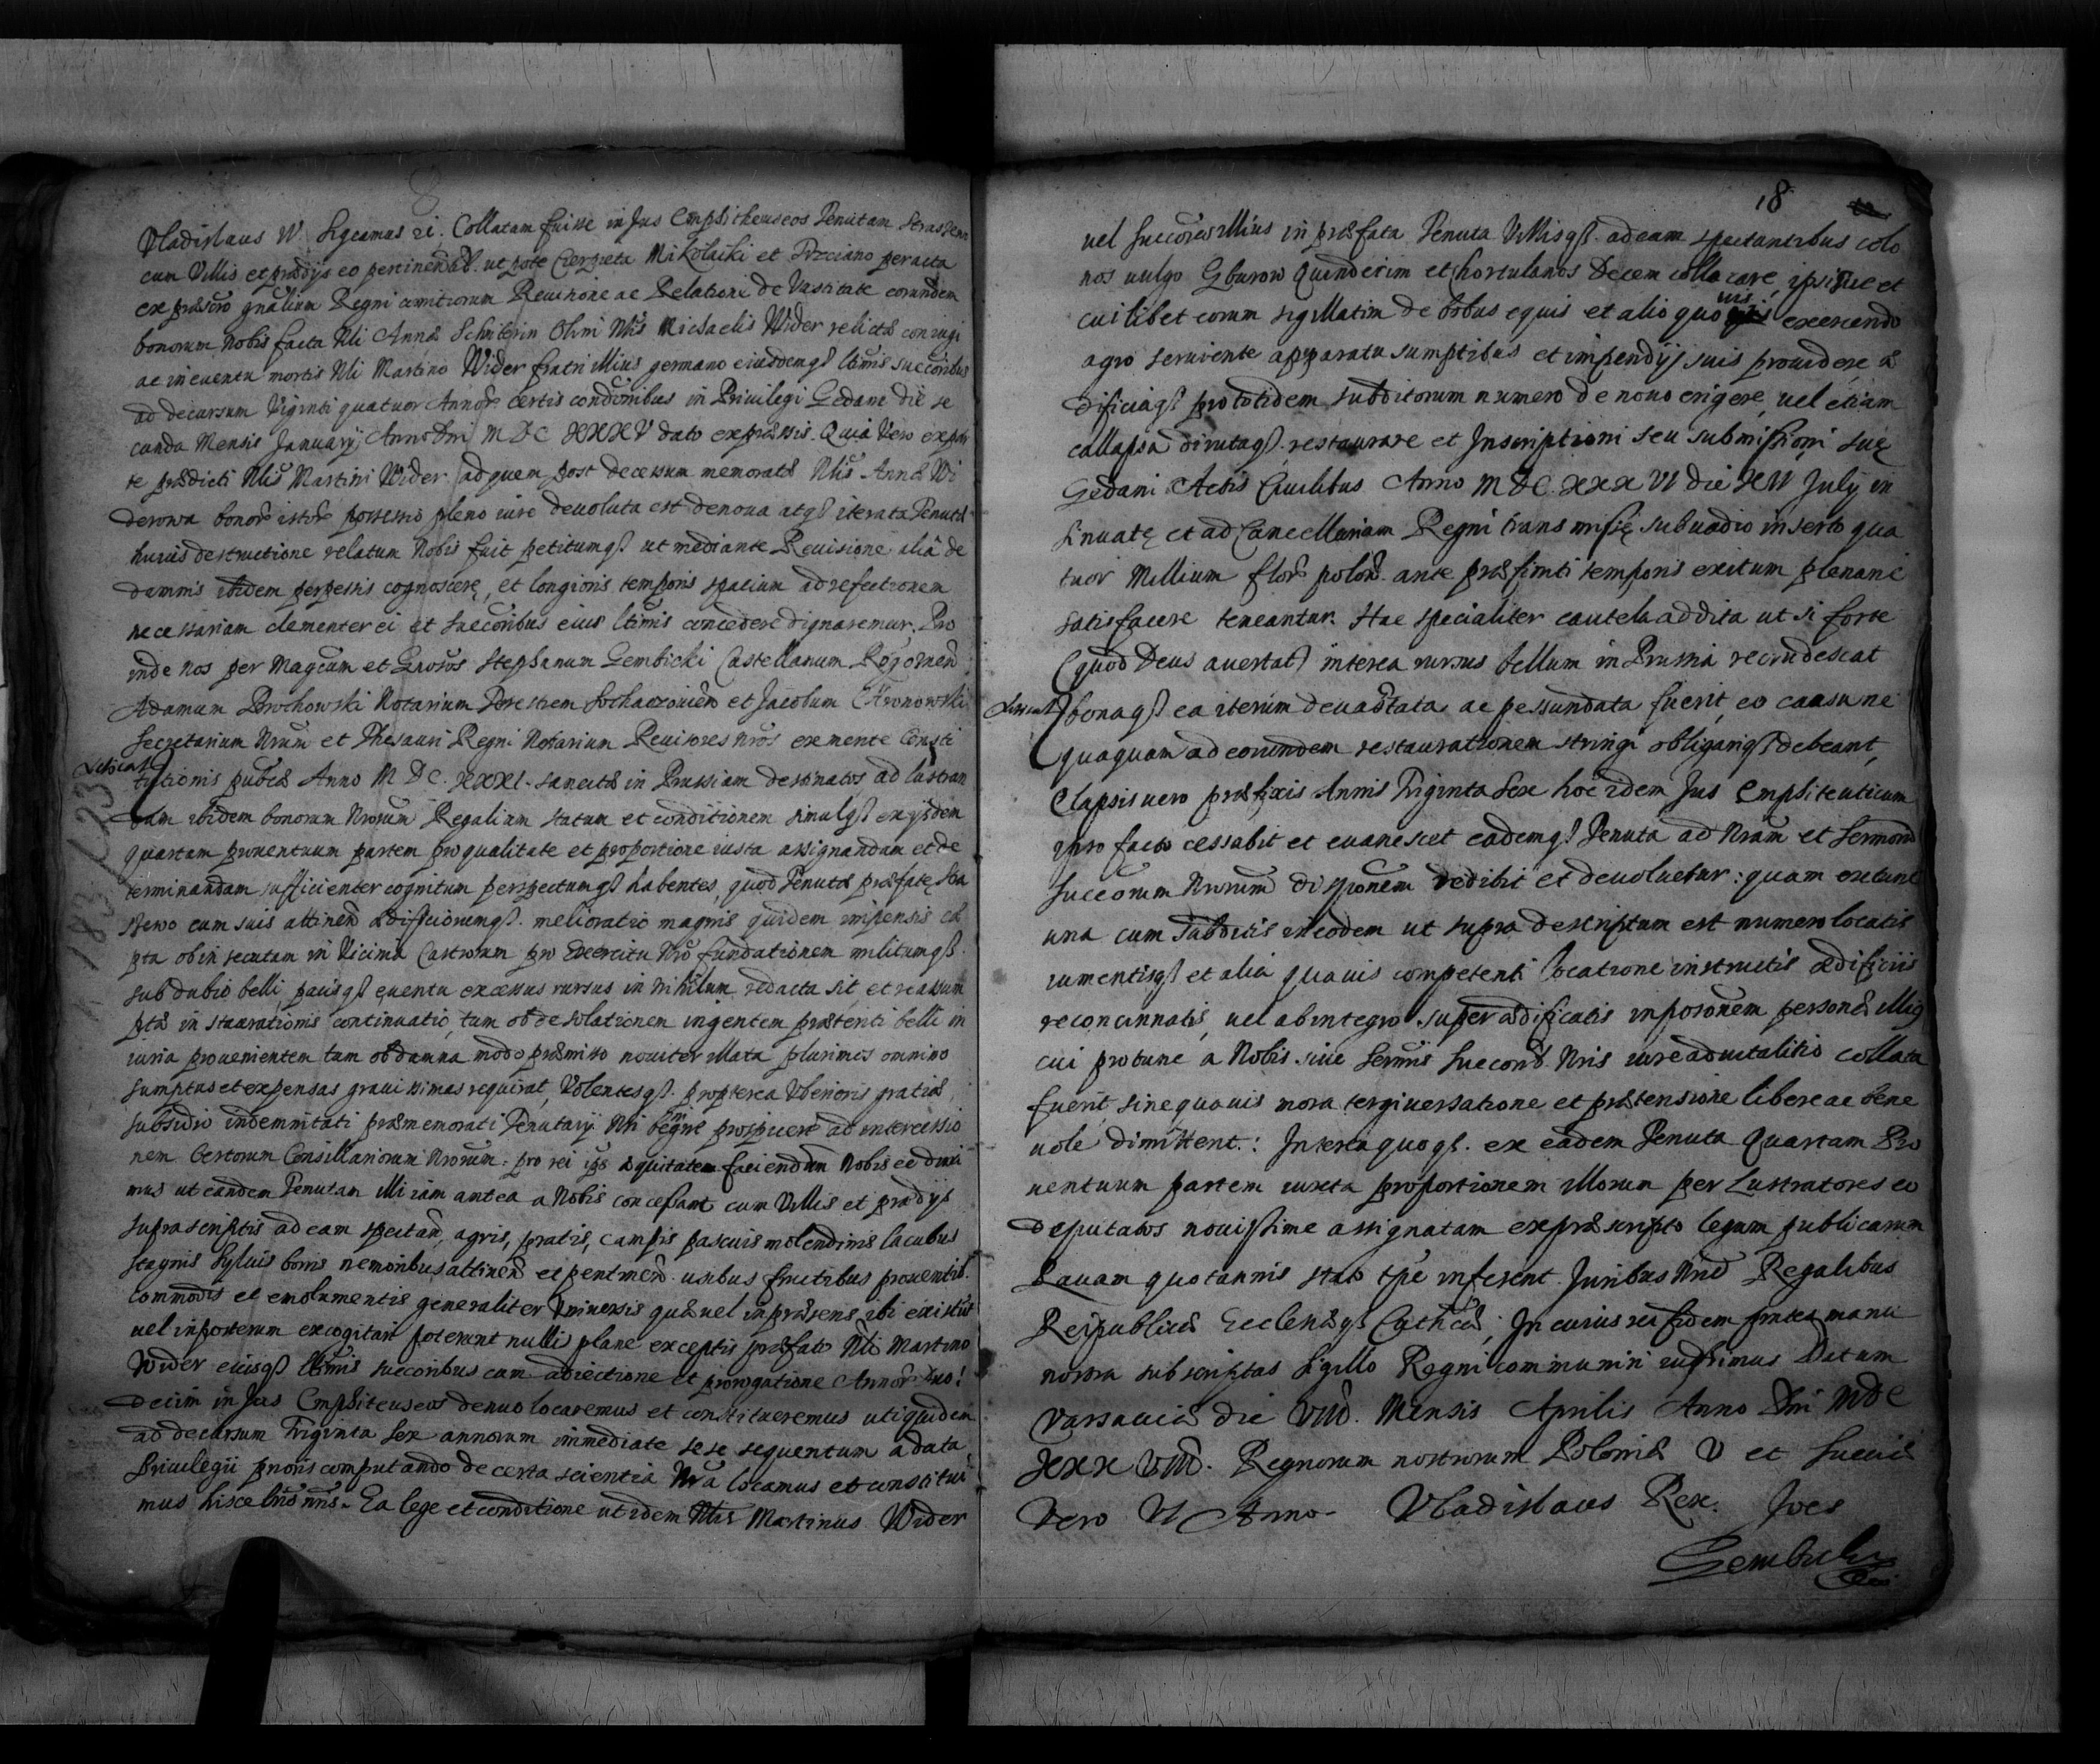 Vladislaus IV. Sigcamus ei. Collatam fuisse in Jus Emphiteuseos Tenutam Straszewo
cum Villis et prædijs eo pertinendib. utpote Cierpieta Mikolaiki et Trzciano peracta
ex præscro gnalium Regni comitiorum Reuisione ac Relatione de Vastitate eorundem
bonorum nobis facta Nli Annæ Schiterin Olim Nlis Michaelis Wider relictæ coniugi
ac in euentu mortis Nli Martino Wider fratri illius germano eiusdemqß ltimis succoribus
ad decursum Viginti quatuor Annor certis condonibus in Priuilegi Gedane die se
cunda Mensis January Anno Dni MDC XXXV dato expressis. Quia Vero ex par
te prædicti Nlis Martini Wider ad quem post decessum memoratæ Nlis Annæ Wi
derowa bonor istor possessio pleno iure deuoluta est denoua atqß iterata Tenutæ
huius destructione relatum Nobis fuit petitumqß ut mediante Reuisione aliâ de
damnis ibidem perpessis cognoscere, et longioris temporis spatium ad refectionem
necessariam clementer ei et succoribus eius ltimis concedere dignaremur. Pro
inde nos per Magcum et Gnosos Stephanum Gembicki Castellanum Rogoznen
Adamum Brochowski Notarium Terestrem Sochaczouien et Jacobum Chronowski
Secretarium Nrum et Thesauri Regni Notarium Reuisores Nros ex mente Consti
tutionis publcæ Anno MDC. XXXI. sancitæ in Prussiam destinatos ad lustran
dam ibidem bonorum Nrorum Regalium statum et conditionem simulqß ex ijsdem
quartam prouentuum partem pro qualitate et proportione iusta assignandam et de
terminandam sufficienter cognitum perspectumqß habentes, quod Tenutæ præfatę Stra
szewo cum suis attinen ædificiorumqß. melioratio magnis quidem impensis cæ
pta ob in secutam in Vicinia Castrorum pro Exercitu Nro fundationem militumqß.
sub dubio belli pacisqß euentu excessus rursus in nihilum redacta sit, et reassum
ptæ in staurationis continuatio, tum ob desolationem ingentem prætenti belli in
iuria prouenientem tum ob damna modo præmisso nouiter illata plurimos omnino
sumptus et expensas grauissimas requirat, Volentesqß. propterea Vberioris gratiæ
subsidio indemnitati præmemorati Tenutarij Nri begne prospicere ad intercessio
nem Certorum Consiliariorum Nrorum. pro rei ips æquitatem faciendum Nobis ee duxi
mus ut eandem Tenutam illi iam antea a Nobis concessam cum Villis et prædijs
suprascriptis ad eam spectan, agris, pratis, campis pascuis molendinis lacubus
stagnis syluis boris nemoribus attinen et pentinen. usibus fructibus prouentib.
commodis et emolumentis generaliter Vniuersis quæ uel inpræsens ibi existut
uel inposterum excogitari poterunt nullis plane exceptis præfato Nli Martino
Wider eiusqß ltimis succoribus cum adiectione et prorogatione Annor duo
decim in Jus Emphiteuseos denuo locaremus et constitueremus uti quidem
ad decursum Triginta sex annorum immediate se se sequentum a data
Priuilegii prioris computando de certa scientia Nra locamus et constitui
mus hisce lris nris. Ea lege et conditione ut idem Nlis Martinus Wider
18
uel succores illius in præfata Tenuta Villisqß. ad eam spectantibus colo
nos uulgo Gburow Quindecim et hortulanos Decem collocare, ipsisque et
cuilibet eorum sigillatim de bobus equis et alio quouis exercendo
agro seruiente apparatu sumptibus et impendijs suis prouidere æ
dificiaqß pro totidem subditorum numero de nouo erigere, uel etiam
collapsa dirutaqß. restaurare et Inscriptioni seu submissioni suę
Gedani Actis Ciuilibus Anno MDC. XXXVI die XIV July in
sinuatę et ad Cancellariam Regni transmissę sub uadio inserto qua
tuor Millium flor polon. ante præfiniti temporis exitum plenarie
satisfacere teneantur. Hac specialiter cautela addita ut si forte
(quod Deus auertat) interea rursus bellum in Prussia recrudescat
bonaqß ea iterum deuastata ac pessundata fuerit, eo casu ne
quaquam ad eorundem restaurationem stringi obligariqß debeant,
Elapsis uero præfixis Annis Triginta Sex hoc idem Jus Emphiteuticum
ipso facto cessabit et euanescet eademqß Tenuta ad Nram et Sermorum
Succorum Nrorum disponem redibit et deuoluetur: quam extunc
una cum Subditis in eodem ut supra descriptum est numero locatis
iumentisqß et alia quauis competenti locatione instructis ædificiis
reconcinnatis, uel ab integro superædificatis in possonem personæ illius
cui protunc a Nobis siue Sermis Succorib Nris iure aduitalitio collata
fuerit sine quauis mora tergiuersatione et prætensione libere ac bene
uole dimittent: Interea quoqß. ex eadem Tenuta Quartam Pro
uentuum partem iuxta proportionem illorum per Lustratores eo
deputatos nouissime assignatam ex præscripto legum publicarum
Rauam quotannis stato tpe inferent. Juribus Nris Regalibus
Reipublicæ Ecclesiæqß Cathcæ; In cuius rei fidem præntes manu
nostra subscriptas Sigillo Regni communiri iussimus Datum
Varsauiæ die VIII. Mensis Aprilis Anno Dni MDC
XXXVIII. Regnorum nostrorum Poloniæ V et Sueciæ
Vero VI Anno. Vladislaus Rex. Joes
Gembicki